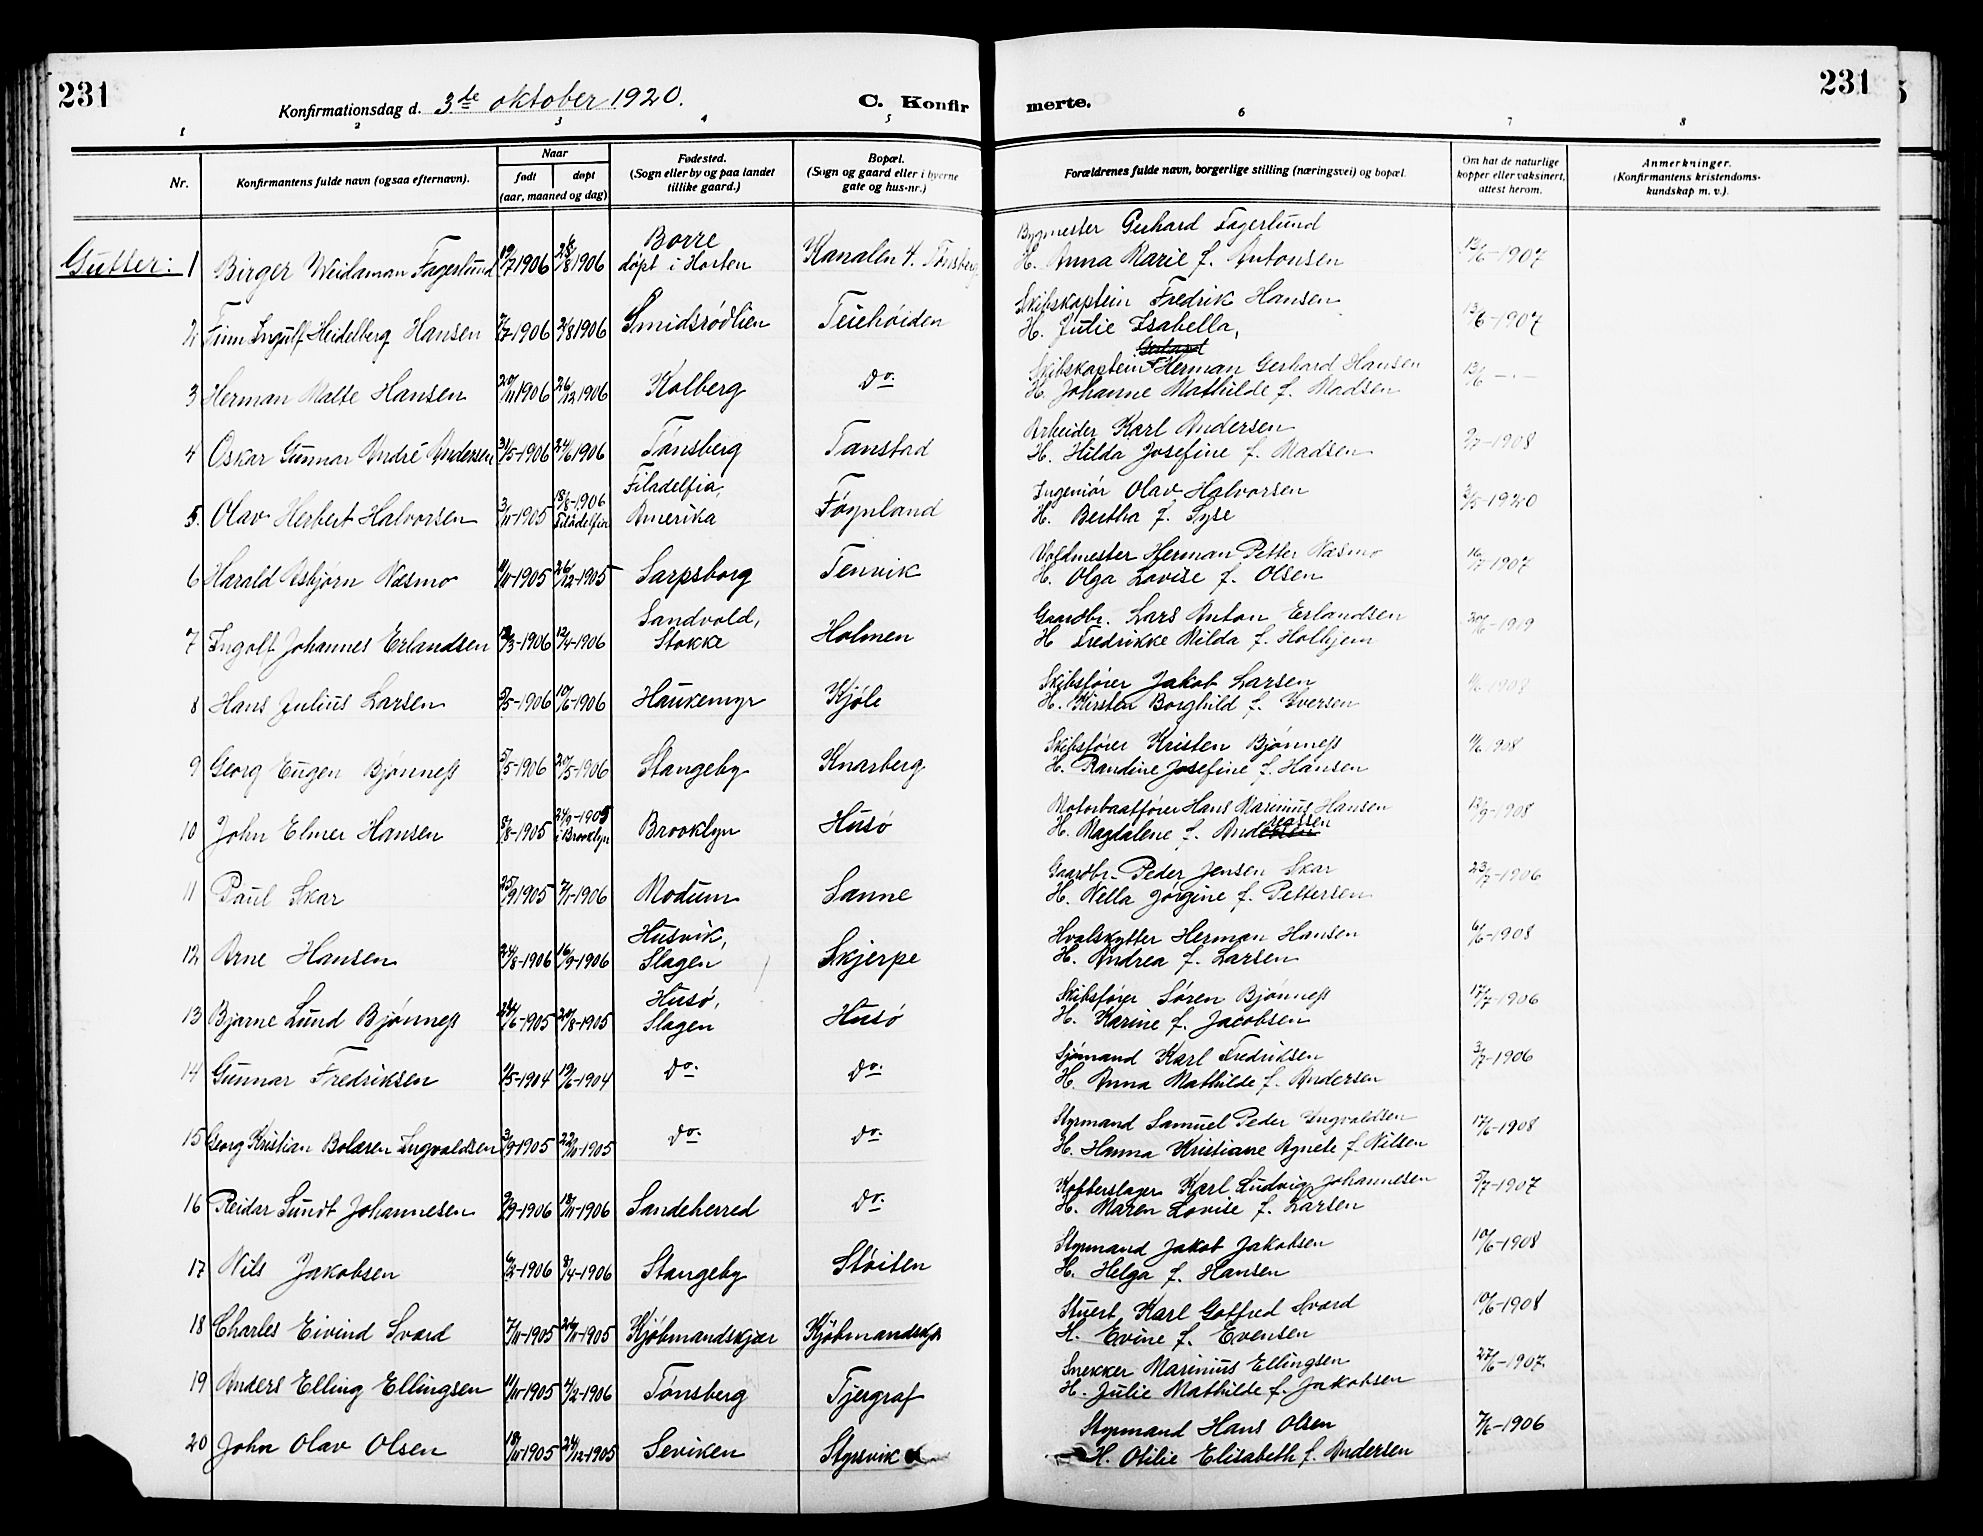 231
Konfirmationsdag d. 3de oktober 1920.
C. Konfir
merte.
231
1 2 3 4 5 6 7 8
Nr.
Konfirmantens fulde navn (ogsaa efternavn).
Naar
født
døpt
(aar, maaned og dag)
Fødested.
(Sogn eller by og paa landet
tillike gaard.)
Bopæl.
(Sogn og gaard eller i byerne
gate og hus-nr.)
Forældrenes fulde navn, borgerlige stilling (næringsvei) og bopæl.
Om hat de naturlige
kopper eller vaksinert,
attest herom.
Anmerkninger.
(Konfirmantens kristendoms-
kundskap m. v.)
Gutter:
1 Birger Weidaman Fagerlund 19/7 1906 /8 1906 Borre døpt i Horten Kanalen 4. Tønsberg
Bygmester Gerhard Fagerlund
H. Anna Marie f. Antonsen 13/6-1907
2 Finn Ingulf Heidelberg Hansen /7-1906 /8 1906 Smidsrødlien Teiehøiden
Skibskaptein Fredrik Hansen
H. Julie Isabella, 13/6-1907
3 Herman Malte Hansen 20/11 1906 26/12 1906 Kolberg do.
Skibskaptein Herman Gerhard Hansen
H. Johanne Mathilde f. Madsen 13/6 -"-
4 Oskar Gunnar André Andersen 31/5-1906 24/6 1906 Tønsberg Tanstad
Arbeider Karl Andersen
H. Hilda Josefine f. Madsen /7-1908
5. Olav Herbert Halvorsen 3/11-1905 18/8-1906 Filadelfia Filadelfia, Amerika Føynland
Ingeniør Olav Halvorsen
H. Bertha f. Syse 3/5-1920
6 Harald Asbjørn Næsmo 11/11-1905 26/12-1905 Sarpsborg Tenvik
Voldmester Herman Petter Næsmo
H. Olga Lovise f. Olsen 16/7-1907
7 Ingolf Johannes Erlandsen /3-1906 12/4-1906 Sandvold, Stokke Holmen
Gaardbr. Lars Anton Erlandsen
H. Fredrikke Milda f. Holhjem 20/6-1919
8 Hans Julius Larsen 5/5-1906 10/6-1906 Haukemyr Kjøle
Skibsfører Jakob Larsen
H. Kirsten Borghild f. Iversen 4/6-1908
9 Georg Eugen Bjønness 5/5-1906 20/5-1906 Stangeby Knarberg
Skibsfører Kristen Bjønness
H. Randine Josefine f. Hansen 4/6 1908
10 John Elmer Hansen 8/8-1905 24/9-1905 i Brooklyn Brooklyn Husø
Motorbaatfører Hans Marinius Hansen
H. Magdalene f. Andreassen 12/9-1908
11 Paul Skar 25/9 1905 7/1-1906 Modum Sanne
Gaardbr. Peder Jensen Skar
H. Nella Jørgine f. Pettersen 23/7-1906
12 Arne Hansen 24/8-1906 16/9-1906 Husvik, Slagen Skjerpe
Hvalskytter Herman Hansen
H. Andrea f. Larsen 6/6-1908
13 Bjarne Lund Bjønness 24/6-1905 20/8-1905 Husø, Slagen Husø
Skibsfører Søren Bjønness
H. Karine f. Jacobsen 17/7-1906
14 Gunnar Fredriksen 1/5-1904 19/6-1904 do. do.
Sjømand Karl Fredriksen
H. Anna Mathilde f. Andersen 3/7-1906
15 Georg Kristian Bolæren Ingvaldsen 3/9-1905 22/10-1905 do. do.
Styrmand Samuel Peder Yngvaldsen
H. Hanna Kristiane Agnete f. Nilsen 17/6-1908
16 Reidar Sundt Johannesen 9/9-1906 18/11-1906 Sandeherred do.
Kobberslager Karl Ludvig Johannesen
H. Maren Lovise f. Larsen 5/7-1907
17 Nils Jakobsen 6/2-1906 8/4-1906 Stangeby Støiten
Styrmand Jakob Jakobsen
H. Helga f. Hansen 10/6-1908
18 Charles Eivind Svard 7/11-1905 26/11-1905 Kjøbmandskjær Kjøbmandskjr
Stuert Karl Gotfred Svard
H. Evine f. Evensen 10/6-1908
19 Anders Elling Ellingsen 11/11-1905 4/2-1906 Tønsberg Tjergraf
Snekker Marinius Ellingsen
H. Julie Mathilde f. Jakobsen 27/6-1907.
20 John Olav Olsen 18/11-1905 24/12-1905 Seviken Styrsvik
Styrmand Hans Olsen
H. Otilie Elisabeth f. Andersen 7/6-1906